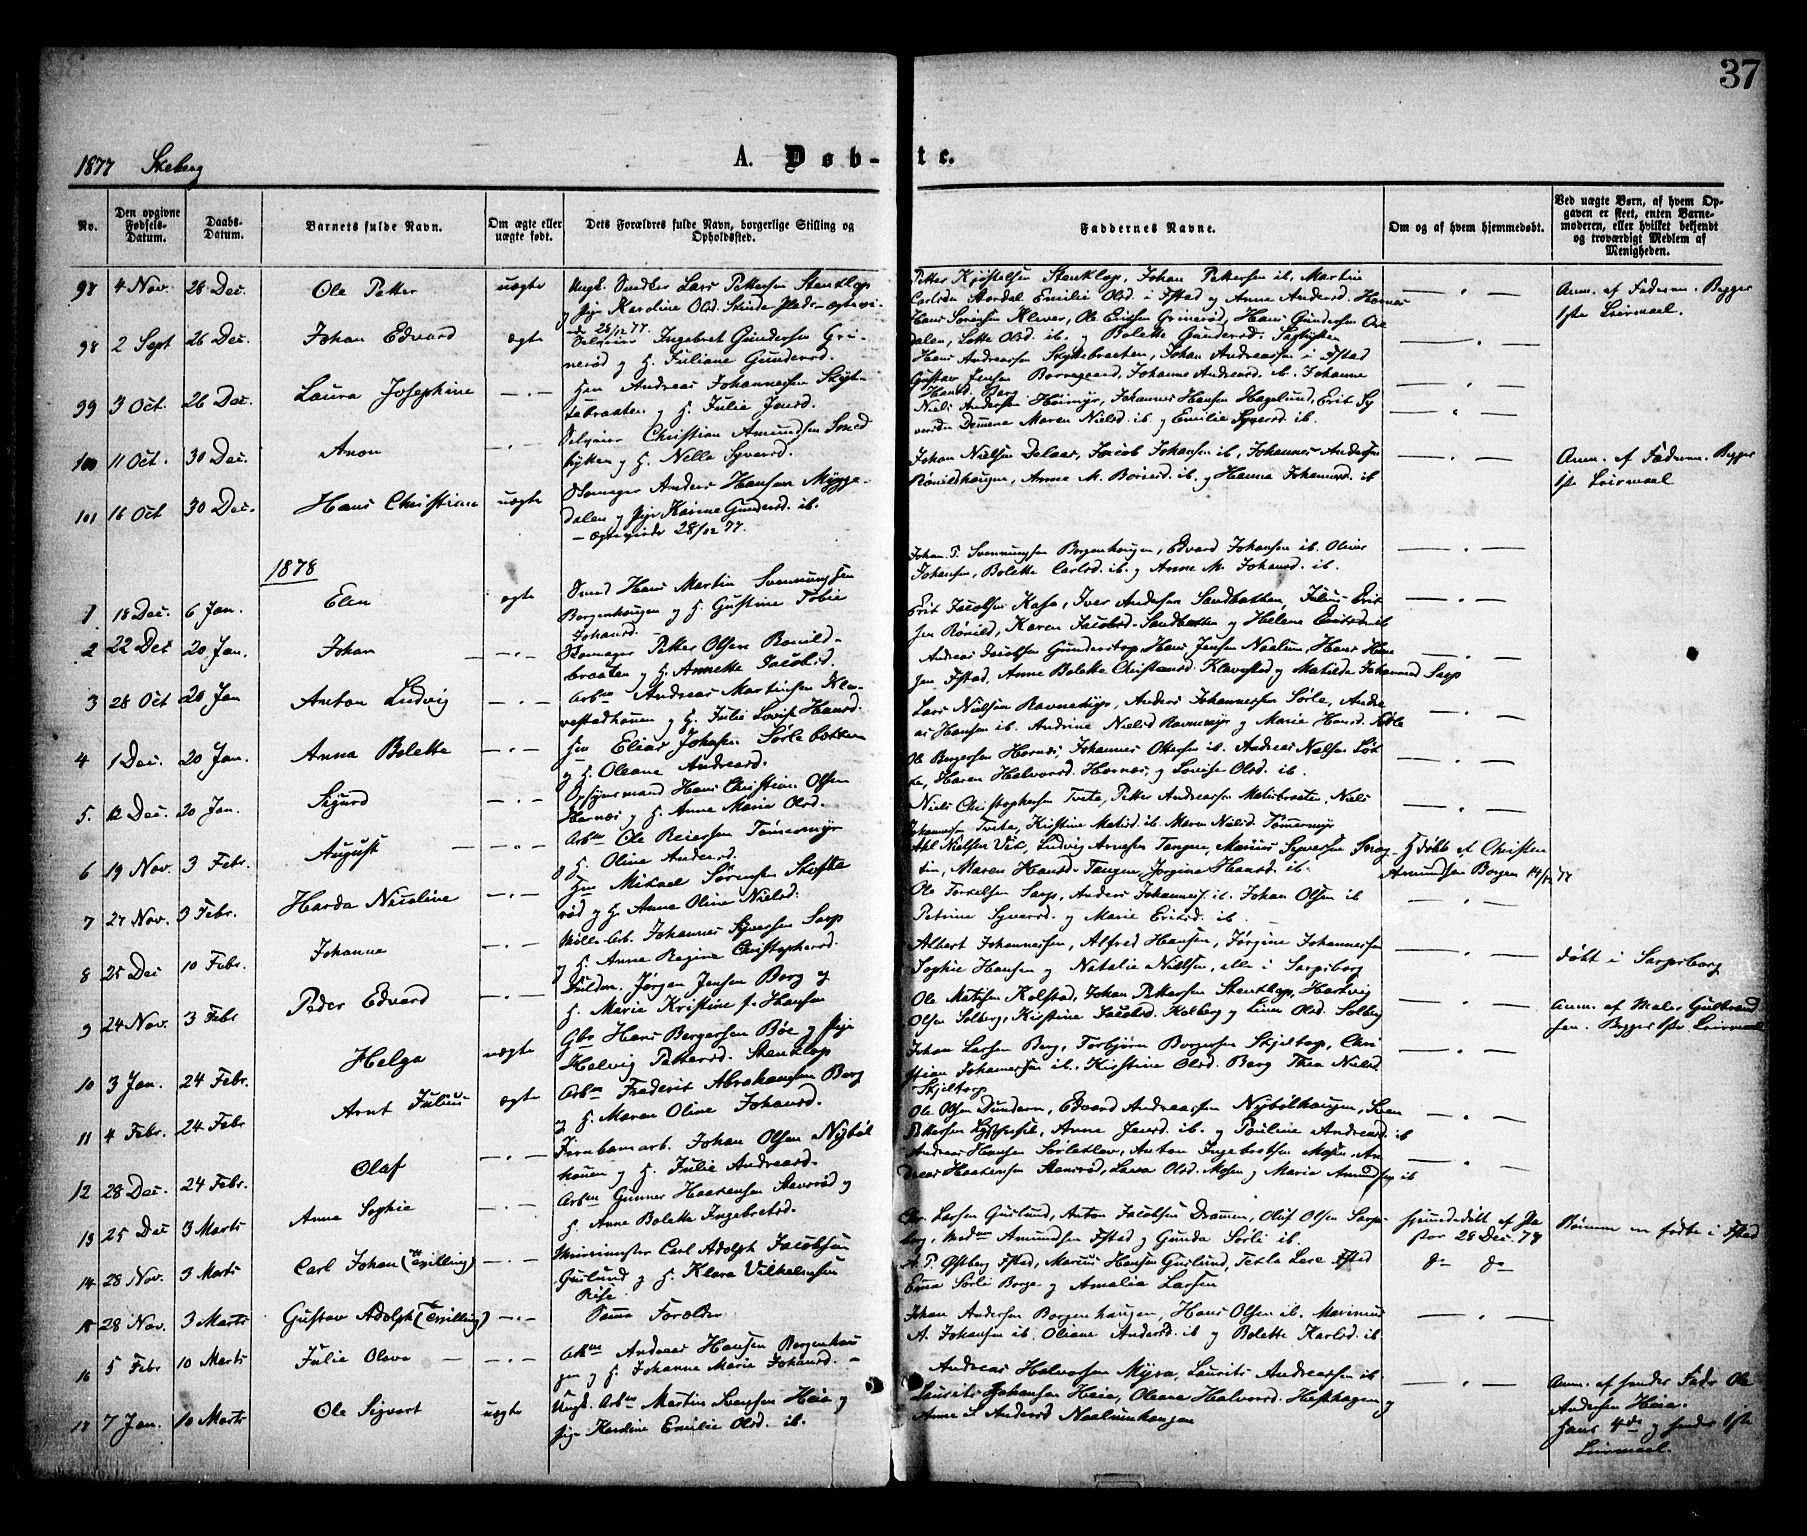 37
1877 Skeberg
A. Døb-te.
No.
Den opgivne Fødsels-Datum.
Daabs-Datum.
Barnets fulde Navn.
Om ægte eller uægte født.
Dets Forældres fulde Navn, borgerlige Stilling og Opholdssted.
Faddernes Navne.
Om og af hvem hjemmedøbt.
Ved uægte Børn, af hvem Opgaven er skeet, enten Barnemoderen, eller hvilket bekjendt og troværdigt Medlem af Menigheden.
98 4 Nov. 28 Dec. Ole Petter uægte Ungk. Snedker Lars Pettersen Stenklop
og Pige Karoline Olsd.
28/12 77.
Petter Kjostelsen Stenklop, Johan Pettersen ib. Martin
Carlsen Aardal Emilie Olsd. i Istad og Anne Andersd. Hornæs
Anm. af Faderen. Begges
1ste Leirmaal.
98 2 Sept 26 Dec. Johan Edvard ægte Selveier Ingebret Gundersen Gri-
nerød og H. Juliane Gundersd.
Hans Sørensen Klever, Ole Erichsen Grinerød, Hans Gundersen Ore
dalen, Lotte Olsd. ib. og Bolette Gundersd.
99 3 Oct. 26 Dec. Laura Josephine Hm Andreas Johannesen Skyt-
tebraaten og H. Julie Jensd.
Hans Andreassen Skyttebraaten, Johan Andreassen i Istad
Gustav Jensen Borregaard, Johanne Andreasd. ib. Johanne
Hansd. Berg
100 11 Oct. 30 Dec. Anon Selveier Christian Amundsen Smed
hytten og H. Nella Syversd.
Niels Andersen Høimyr, Johannes Hansen Hagelund, Erik Sy
versen Maren Nielsd. ib. og Emilie Syversd. ib.
101 16 Oct 30 Dec. Hans Christian uægte Skomager Anders Hansen Mygge-
dalen og Pige Karine Gundersd. ib.
28/12 77.
Johan Nielsen Dalaas, Jacob Johansen ib, Johannes Andersen
Rønildhaugen, Anne M. ib. og Hanna Johannesd. ib
Anm. af Faderen. Begges
1ste Leirmaal
1878
1 18 Dec. 6 Jan. Elen ægte Smed Hans Martin Svenningsen
Borgenhaugen og H. Gustine Tobie
Johansd.
Johan T. Svenningsen Borgenhaugen, Edvard Johansen ib. Oliver
Johansen, Bolette Carlsd. ib. og Anne M. Johansd. ib.
2 22 Dec 20 Jan. Johan Skomager Petter Olsen Rønild-
braaten og H. Annette Jacobsd.
Erik Jacobsen Kasa, Iver Andersen Sandbakken, Julius Erik
sen Rønild, Karen Jacobsd. Sandbakken og Helene Eriksd. ib
3 28 Oct 20 Jan Anton Ludvig Arbm Andreas Martinsen Kla-
vestadhauen og H. Julie Lovise Hansd.
Andreas Jacobsen Gunderstop, Hans Jensen Naalum, Hans Han
sen Istad, Anne Bolette Christiansd. Klavestad og Matilde Johannesd Sarp
4 1 Dec. 20 Jan. Anna Bolette Hm Elias Johansen Sørlebakken
og H. Oleane Andreasd.
Lars Nielsen Ravnemyr, Anders Johannessen Sørle, Andre
as Hansen ib. Andrine Nielsd Ravnemyr og Marie Hansd. Sørle
5. 12 Dec. 20 Jan. Sigurd Opsynsmand Hans Christian Olsen
Hornæs og H. Anne Marie Olsd.
Ole Bergersen Hornæs, Johannes Ottersen ib. Andreas Nielsen
Maren Halvorsd. Hornæs, og Lovise Olsd. ib.
6 19 Nov. 3 Febr. August Arbm Ole Reiersen Tømmermyr
og H. Oline Andersd.
Niels Christophersen Tveta, Petter Andreassen Matisbraaten, Niels
Johannesen Tveita, Kirstine Matisd. ib. Maren Nielsd. Tømermyr
7 27 Nov. 3 Febr. Harda Nicoline Hm Mikael Sørensen Skofte
rød og H. Anne Oline Nielsd.
Ahl Nielsen Vik, Ludvig Arnesen Tangen, Marius Syversen
Maren Hansd. Tangen, Jørgine Hansd. ib.
Hjdøbt af Christen
Amundsen Borgen 14/12 77
8 25 Dec 10 Febr. Johanne Mølle-Arb. Johannes Syversen Sarp
og H. Anne Regine Christophersd.
Ole Torkelsen Sarp, Anders Johannes. ib. Johan Olsen ib
Petrine Syversd. og Marie Eriksd. ib.
9 24 Nov. 3 Febr Peder Edvard Fuldm. Jørgen Jensen Berg og
H. Marie Kristine f. Hansen
Albert Johannessen, Alfred Hansen, Jørgine Johannessen
Sophie Hansen og Natalie Nielsen, alle i Sarpsborg
døbt i Sarpsborg
10 3 Jan. 24 Febr. Helga uægte Gbr Hans Bergersen Bøe og Pige
Helvig Pettersd. Stenklop
Ole Matisen Kolstad, Johan Pettersen Stenklop, Hartvig
Olsen Solberg, Kirstine Jacobsd. Kolberg og Lina Olsd. Solberg
Anm. af Maler Gulbrand
sen. Begges 1ste Leirmaal
11 4 Febr. 24 Febr Arnt Julius ægte Arbm Frederik Abrahamsen Berg
og H. Maren Oline Johansd.
Johan Larsen Berg, Torbjørn Borgersen Skjeltorp, Chri
stian Johannessen ib., Kirstine Olsd. Berg Thea Nielsd
Skjeltorp
12 28 Dec. 24 Febr. Olaf Jernbanearb. Johan Olsen Nybøl
hauen og H. Julie Andreasd.
Ole Olsen Dundaren, Edvard Andreassen Nybølhaugen, Svan
Pettersen, Anne Jensd. ib. og Pauline Andreasd. ib
13 25 Dec 3 Marts Anna Sophie Arbm Gunner Haakensen Stensrød og
H. Anne Bolette Ingebretsd.
Andreas Hansen Sørleklev, Anton Ingebretsen Mosen, An
dreas Haakensen Stensrød, Lava Olsd. Mosen og Marie Amundsen ib
14 28 Nov. 3 Marts Carl Johan (Tvilling) Murmester Carl Adolph Jacobsen
Guslund og H. Klara Vilhelmsen
Rise.
Chr. Larsen Guslund, Anton Jacobsen Drammen, Oluf Olsen Sarps-
borg, Amundsen Istad og Gunda Sørli ib.
hjemmedøbt af Pa
stor 28 Dec. 77
Børnene er fødte i Istad
15 28 Nov. 3 Marts Gustav Adolph (Tvilling) Samme Forældre
A. P. Østberg Istad, Marius Hansen Guslund, Tekla Lare Istad
Erna Sørli Borge og Amalia Larsen
do do
16 5 Febr 10 Marts Julie Olava Arbm Andreas Hansen Borgenhau
gen og H. Johanne Marie Johansd.
Johan Andersen Borgenhaugen, Hans Olsen ib. Marinius
A. Johansen ib. Oliane Andersd. ib og Bolette Karlsd. ib.
18 7 Jan. 10 Marts Ole Sigvart uægte Ungk. Arbm Martin Svensen Heia og
Pige Karoline Emilie Olsd. ib.
Andreas Halvorsen Myra, Laurits Andreassen ib
Laurits Johansen Heia, Oleana Halvorsd. Hekhagen og
Anne S Andersd Naalumhaugen
Anm. af hendes Fader Ole
Andersen Heia.
Hans 4de og hendes 1ste
Leirmaal.